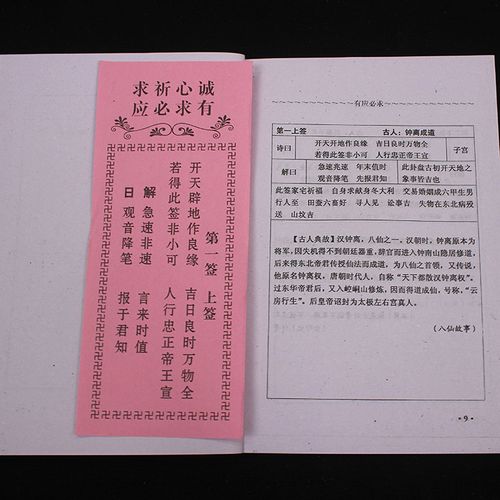 诚心祈求
有求必应
第一签 上签
开天辟地作良缘 吉日良时万物全
若得此签非小可 人行忠正帝王宣
解 急速非速 言来时值
日 观音降笔 报于君知
有应必求
第一上签 古人：钟离成道
诗曰 开天开地作良缘 吉日良时万物全 子宫
若得此签非小可 人行忠正帝王宣
解曰 急速兆速 年末值时 此卦盘古初开天地之
观音降签 先报君知 象事皆吉也
此签家宅祈福 自身求献身冬大利 交易婚姻成六甲生男
行人至 田蚕六畜好 寻人见 讼事吉 失物在东北病殁
送 山坟吉
【古人典故】汉钟离，八仙之一。汉朝时，钟离原本为
将军，因失机得不到朝廷器重，辞官而进入钟南山隐居修道，
后来得东北帝君传授仙法而成道，为八仙之首领，又传说，
他原名钟离权，唐朝时代人，自称“天下都散汉钟离权”。
过东华帝君后，又入崆峒山修炼，因而得道成仙，号称，“云
房行生”。后皇帝诏封为太极左右宫真人。
（八仙故事）
·9·